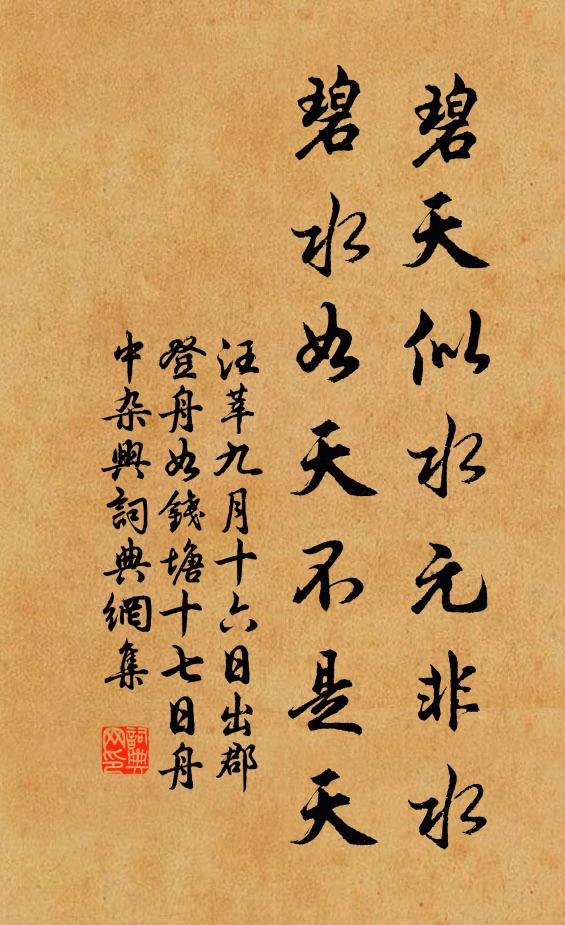 碧天似水元非水
碧水如天不是天
汪莘九月十六日出郡
登舟如錢塘十七日舟
中杂興詞典網集
詞典网印